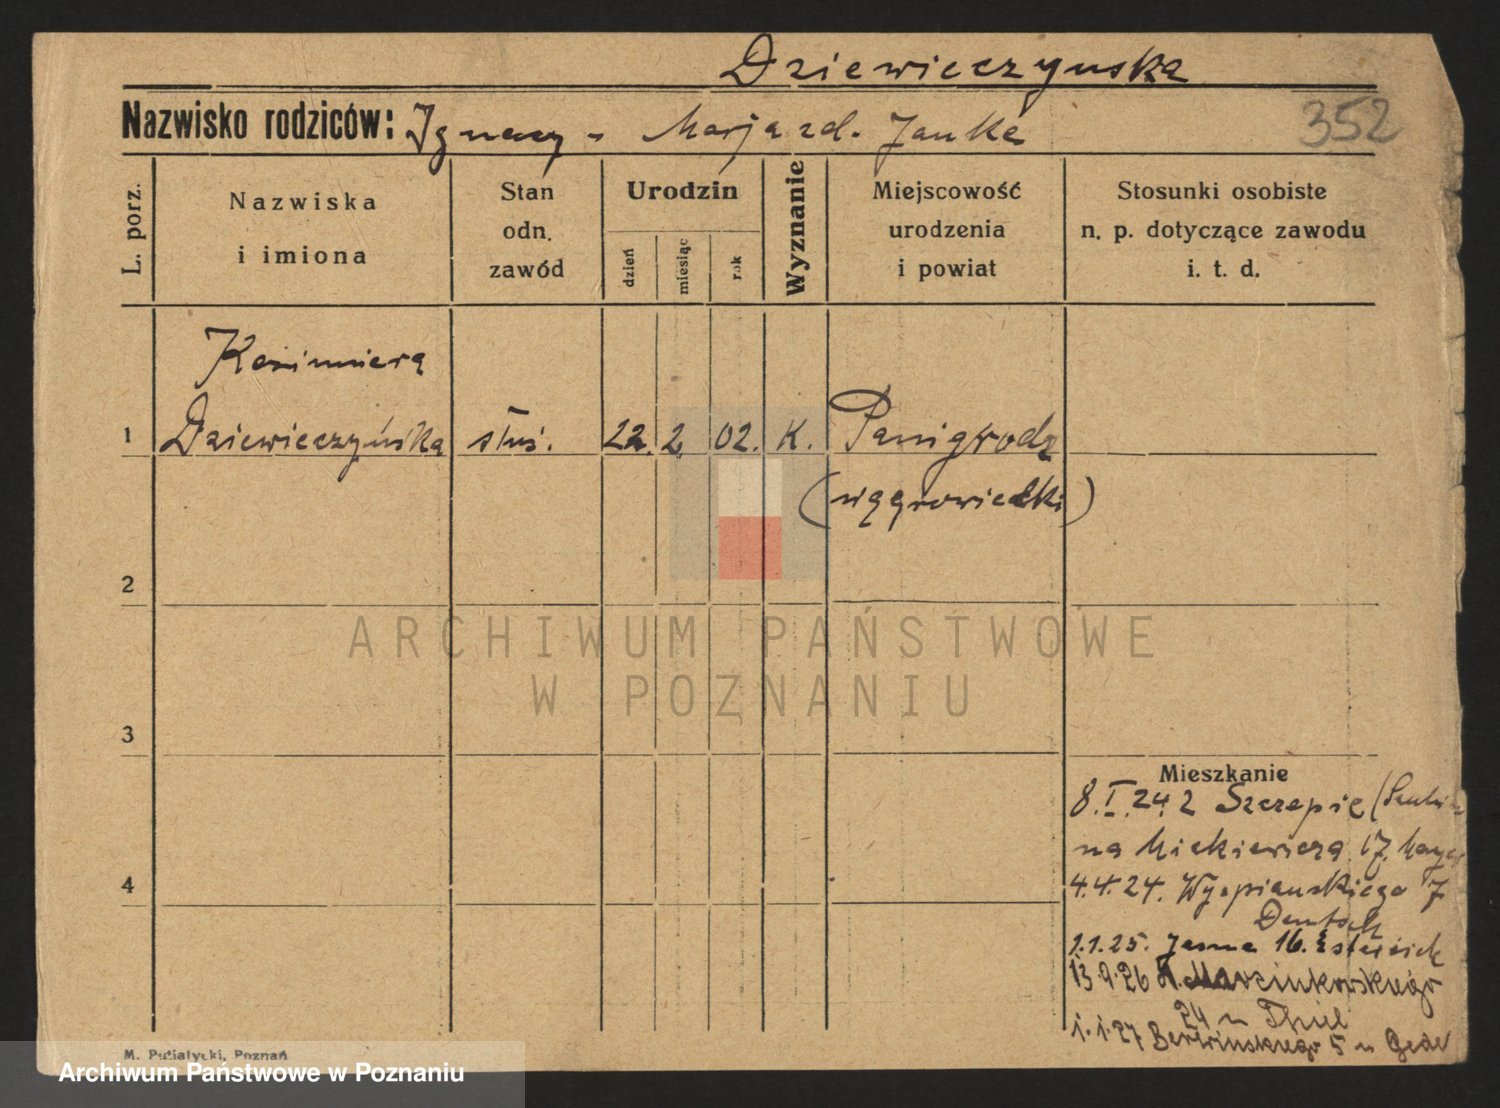 Dziewieczyńska
Nazwisko rodziców: Ignacy - Marja zd. Janke
352
L. porz.
Nazwiska
i imiona
Stan
odn.
zawód
Urodzin
dzień
miesiąc
rok
Wyznanie
Miejscowość
urodzenia
i powiat
Stosunki osobiste
n. p. dotyczące zawodu
i. t. d.
Kazimiera
1 Dziewieczyńska służ. 22. 2. 02. K. Panigrodz
(wągrowiecki)
2
ARCHIWUM PAŃSTWOWE
W POZNANIU
3
4
Mieszkanie
8.I.24. z Szczepic
na Mickiewicza 17.
4.4.24. Wyspiańskiego 7
Deutsch
1.1.25. Jasna 16.
13.9.26 Marcinkowskiego
24 u Thiel
1.1.27 Berwińskiego 5 u
M. Putiatycki, Poznań
Archiwum Państwowe w Poznaniu